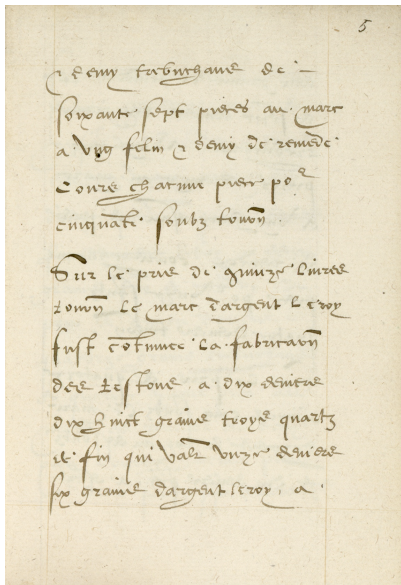 5
& demy trebuchans de
soixante sept pieces au marc
a ung felin & demy de remede
Cours chacune piece por
cinquate soubz tourn.
Sur le prie de quinze livres
tourn le marc dargent le roy
fust cotinuee la fabricaon
des testons a dix deniers
dix huict grains troys quartz
de fin qui valt unze deniers
six grains dargent le roy, a